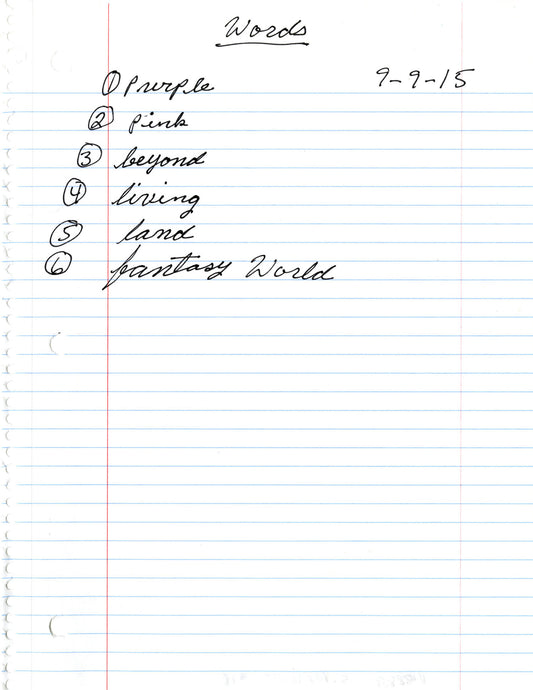 Words
9-9-15
① Purple
② Pink
③ beyond
④ living
⑤ land
⑥ fantasy World